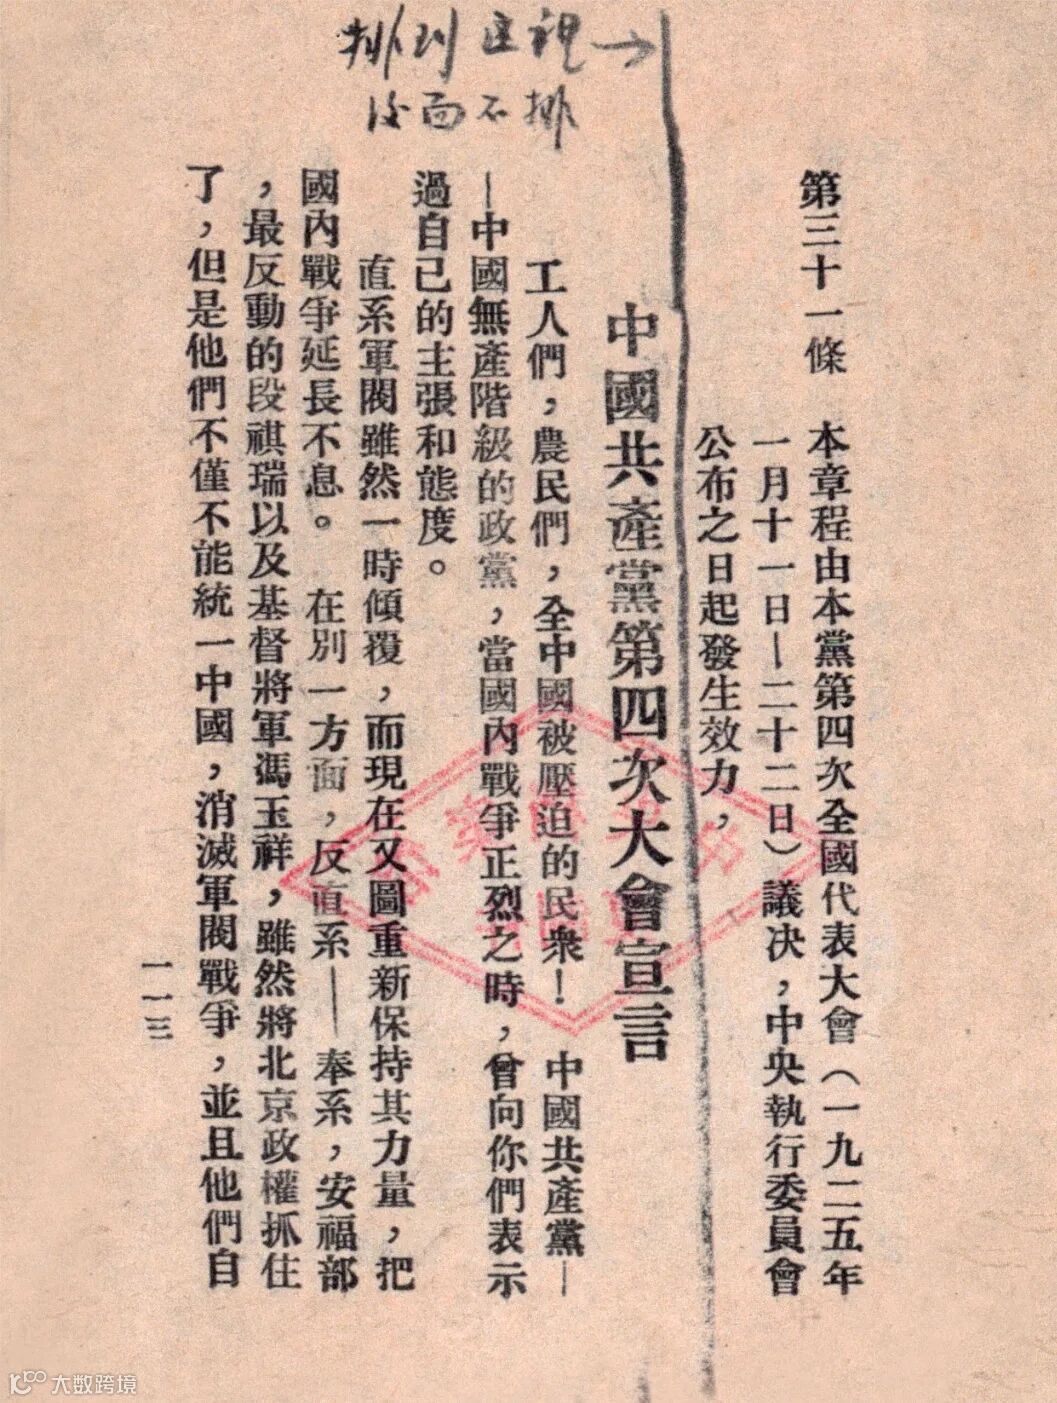 排到這裡→
后面不排
第三十一條　本章程由本黨第四次全國代表大會（一九二五年
一月十一日—二十二日）議决，中央執行委員會
公布之日起發生效力，
中國共產黨第四次大會宣言
工人們，農民們，全中國被壓迫的民衆！　中國共產黨—
—中國無產階級的政黨，當國內戰爭正烈之時，曾向你們表示
過自己的主張和態度。
直系軍閥雖然一時傾覆，而現在又圖重新保持其力量，把
國內戰爭延長不息。　在別一方面，反直系——奉系，安福部
，最反動的段祺瑞以及基督將軍馮玉祥，雖然將北京政權抓住
了，但是他們不僅不能統一中國，消滅軍閥戰爭，並且他們自
一一三
大数跨境